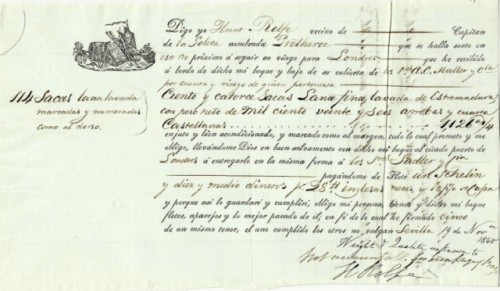 Digo yo Hunt Rolfe vecino de Capitan
de la Goleta nombrada Protheroe que se halla surta en
este próxima á seguir su viage para Londres que he recibido
á bordo de dicho mi buque y bajo de su cubierta de los Sres A. C. Muller y Cia
de cuenta y riesgo de quien pertenece
114 Sacas lana lavada
marcadas y numeradas
como al dorso.
Ciento y catorce Sacas Lana fina lavada de Estremadura
con peso neto de Mil Ciento Veinte y Seis arrobas y cuarta
Castellanas @ 1,126 1/4
enjuto y bien acondicionado, y marcado como al margen, con lo cual prometo y me
obligo, llevándome Dios en buen salvamento con dicho mi buque al citado puerto de
Londres á entregarlo en la misma forma á los Sres Sadler y Cia
pagándome de flete un Schelin
y diez y medio dineros inglesas
y porque así lo guardaré y cumpliré, obligo mi persona, bienes y dicho mi buque
fletes, aparejos y lo mejor parado de él, en fé de lo cual he firmado cinco
de un mismo tenor, el uno cumplido los otros no valgan Sevilla 19 de Novre
1840
Weight & Quality unknown to
Not
H Rolfe